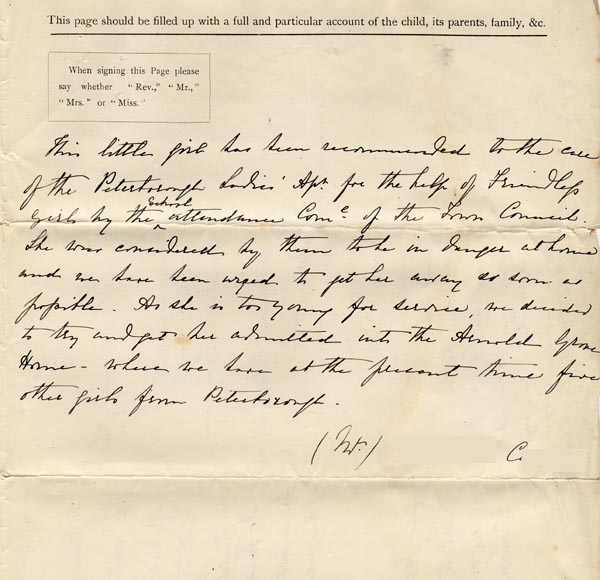 This page should be filled up with a full and particular account of the child, its parents, family, &c.
When signing this Page please
say whether "Rev.," "Mr.,"
"Mrs." or "Miss."
This little girl has been recommended to the care
of the Peterborough Ladies' Assn. for the help of Friendless
School
girls by the ‸ attendance Comee. of the Town Council.
She was considered by them to be in danger at home
and we have been urged to get her away so soon as
possible. As she is too young for service, we decided
to try and get her admitted into the Arnold Grove
Home - where we have at the present time five
other girls from Peterborough.
C.